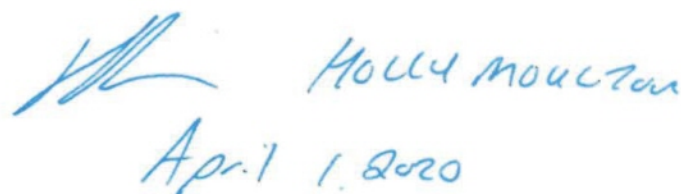 Holly Moulton
April 1, 2020